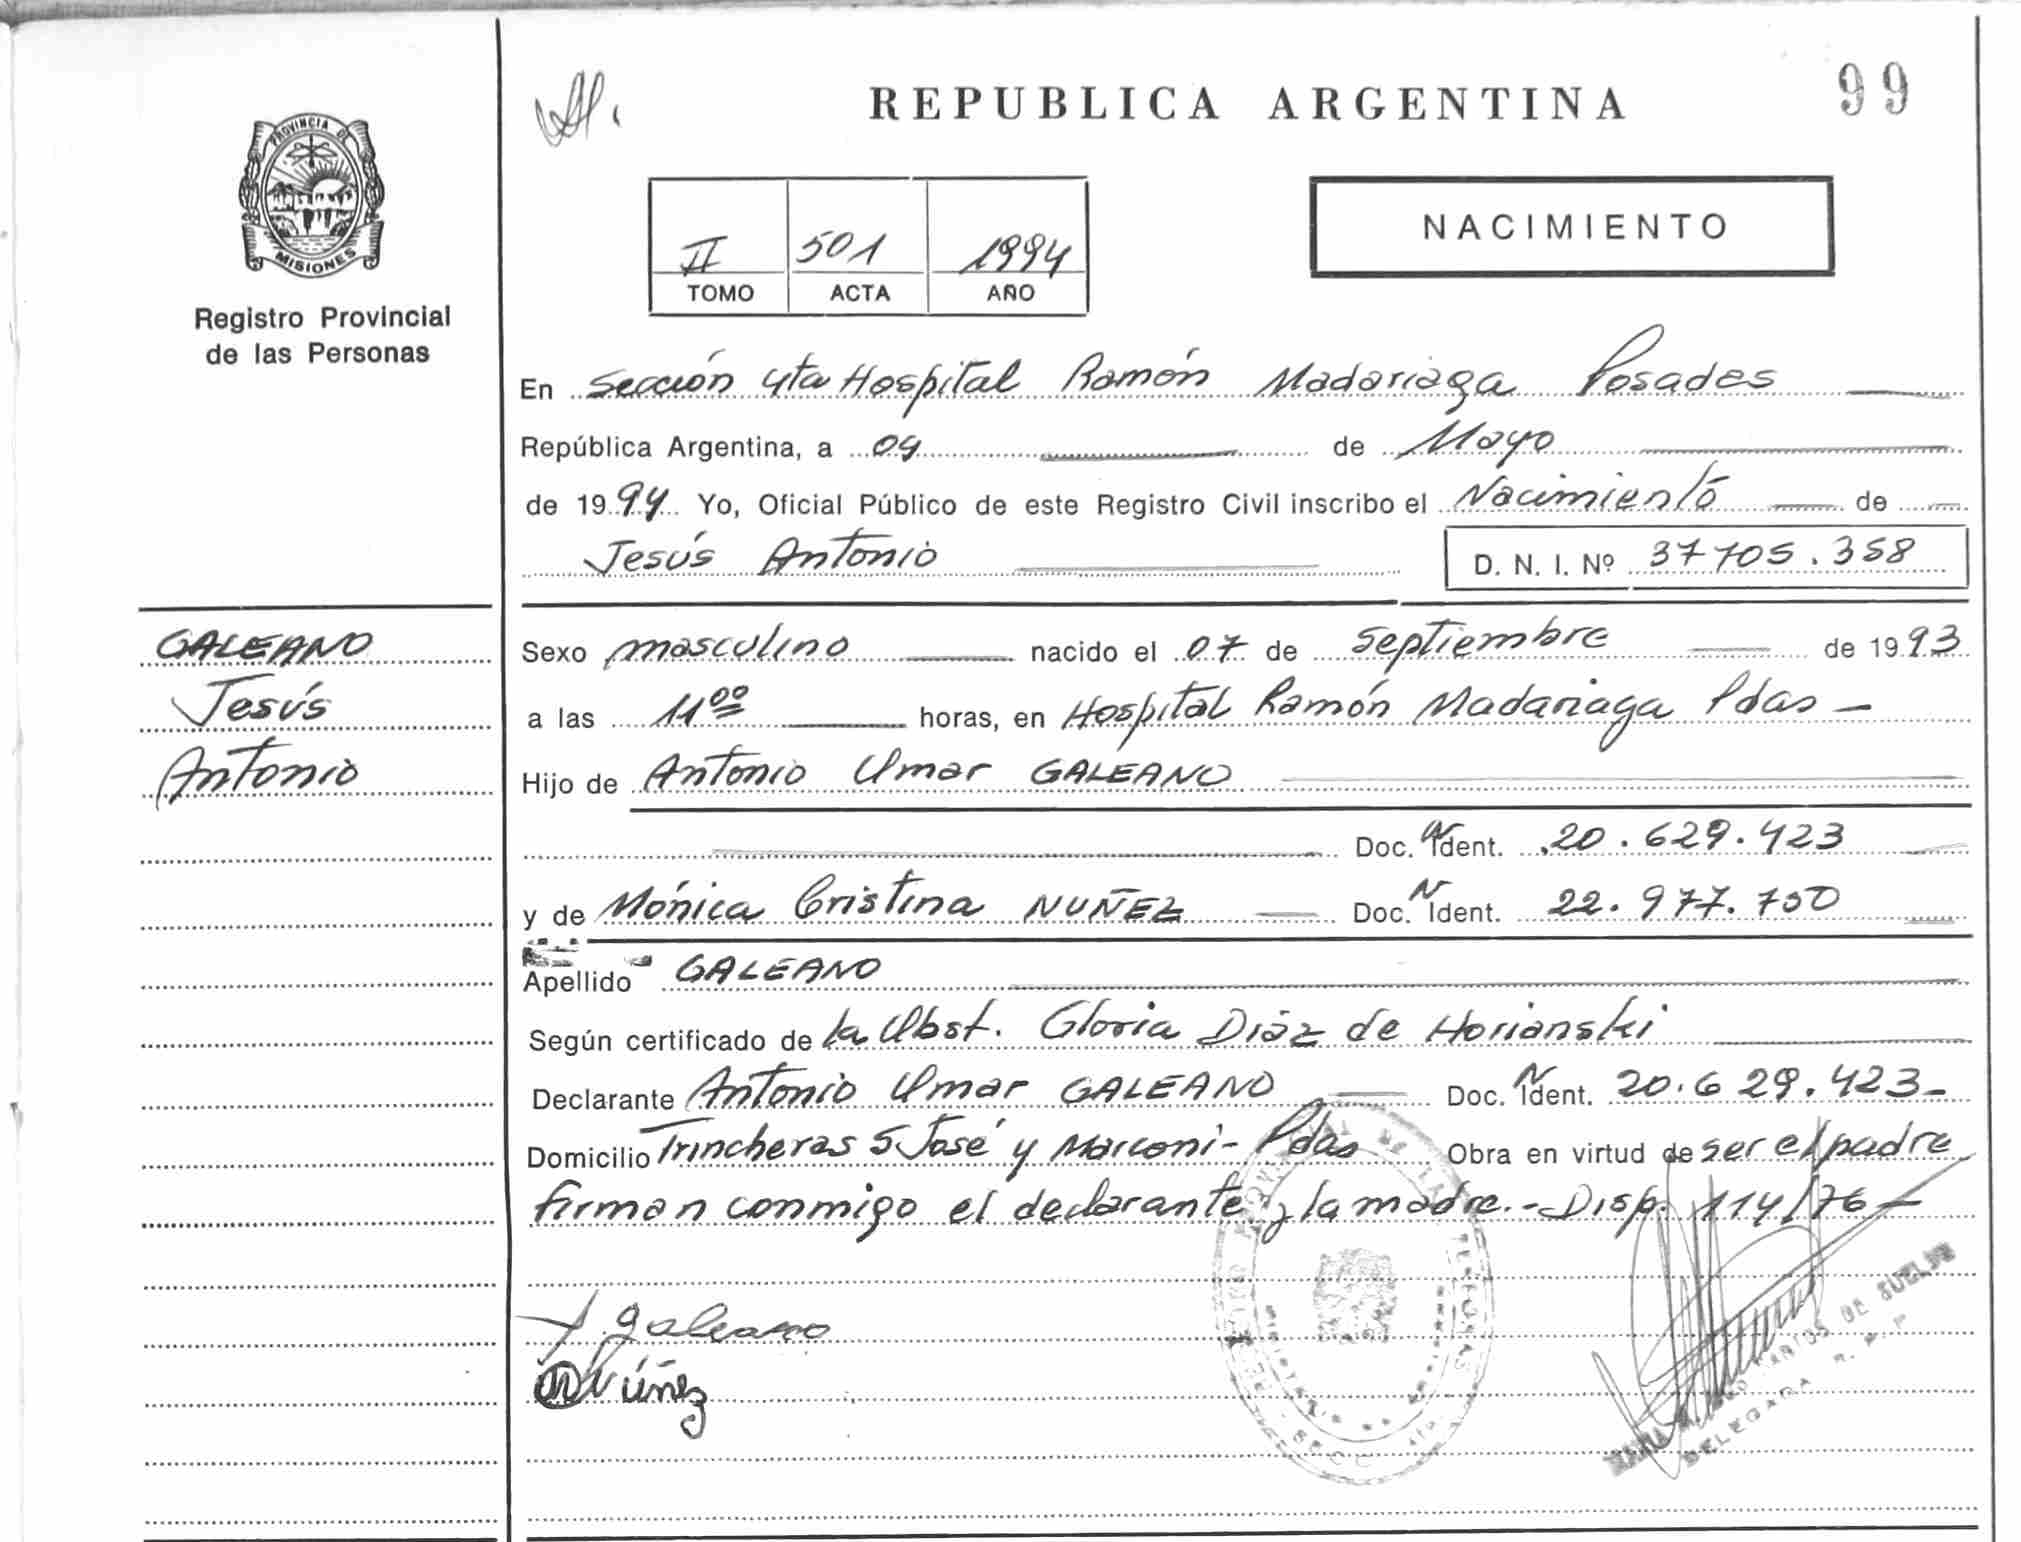 REPUBLICA ARGENTINA
99
PROVINCIA DE
MISIONES
Registro Provincial
de las Personas
II 501 1994
TOMO ACTA AÑO
NACIMIENTO
En Sección 4ta Hospital Ramón Madariaga Posadas
República Argentina, a 09 de Mayo
de 1994 Yo, Oficial Público de este Registro Civil inscribo el Nacimiento de
Jesús Antonio
D. N. I. Nº 37705.358
GALEANO
Jesús
Antonio
Sexo masculino nacido el 07 de Septiembre de 1993
a las 11 00 horas, en Hospital Ramón Madariaga Pdas -
Hijo de Antonio Omar GALEANO
Doc. N Ident. 20.629.423
y de Mónica Cristina NUÑEZ Doc. N Ident. 22.977.750
Apellido GALEANO
Según certificado de la Obst. Gloria Diáz de Horianski
Declarante Antonio Omar GALEANO Doc. N Ident. 20.629.423-
Domicilio Trincheras S José y Marconi- Pdas Obra en virtud de ser el padre
firman conmigo el declarante y la madre.- Disp. 114/76-
Galeano
Núñez
DE SUELDO
DELEGADA R. P. P